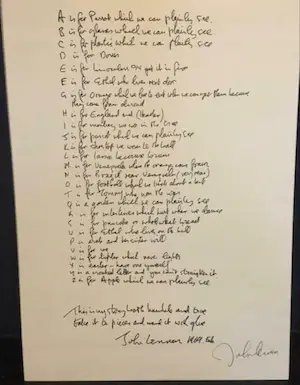 A is for Parrot which we can plainly see.
B is for glasses which we can plainly see
C is for plastic which we can plainly see
D is for Doris
E is for binoculars I'll get it in five
F is for Ethel who lives next door
G is for Orange which we love to eat when we can get them because
they come from abroad
H is for England and (Heather)
I is for monkey we see in the tree
J is for parrot which we can plainly see
K is for shoetop we wear to the ball
L is for Land because brown
M is for Venezuela where the oranges come from
N is for Brazil near Venezuela (very near)
O is for football which we kick about a bit
T is for Tommy who won the war
Q is a garden which we can plainly see
R is for intestines which hurt when we dance
S is for pancake or whole wheat bread
U is for Ethel who lives on the hill
P is arab and her sister will
V is for me
W is for lighter which never lights
X is easter - have one yourself
Y is a crooked letter and you can't straighten it
Z is for Apple which we can plainly see
This is my story both humble and true
take it to pieces and mend it with glue
John Lennon 1969 Feb
John Lennon